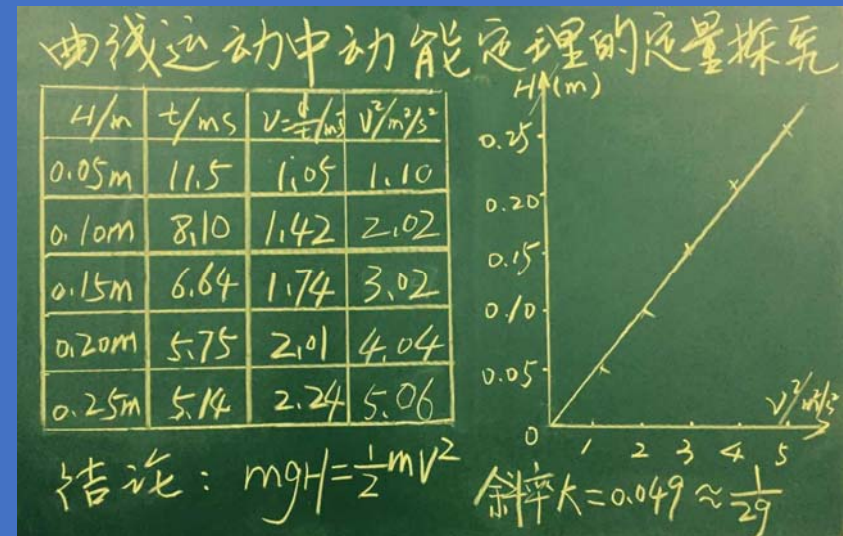 曲线运动中动能定理的定量探究
H/m t/ms V=d/t/m/s V²/m²/s²
0.05m 11.5 1.05 1.10
0.10m 8.10 1.42 2.02
0.15m 6.64 1.74 3.02
0.20m 5.75 2.01 4.04
0.25m 5.14 2.24 5.06
结论：mgH=½mV²
H(m)
0.25
0.20
0.15
0.10
0.05
0 1 2 3 4 5
V²/m²/s²
斜率K=0.049≈1/2g